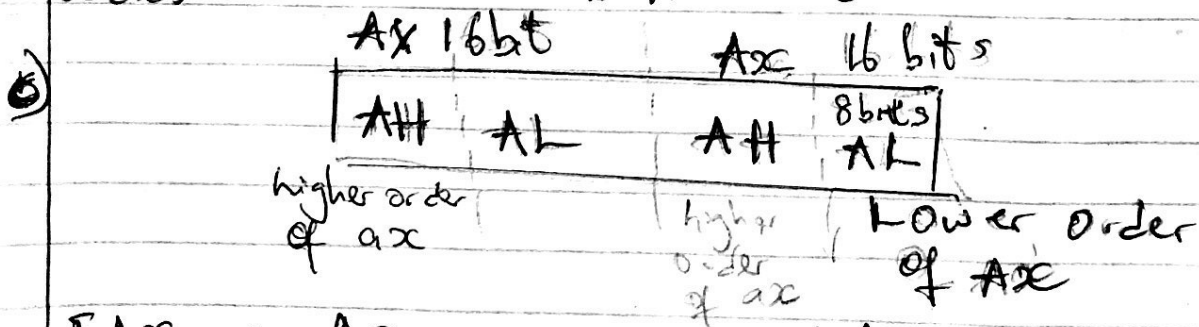 6)
AX 16bit Ax 16 bits
AH AL AH 8bits
AL
higher order
of ax
higher
order
of ax
Lower order
of Ax